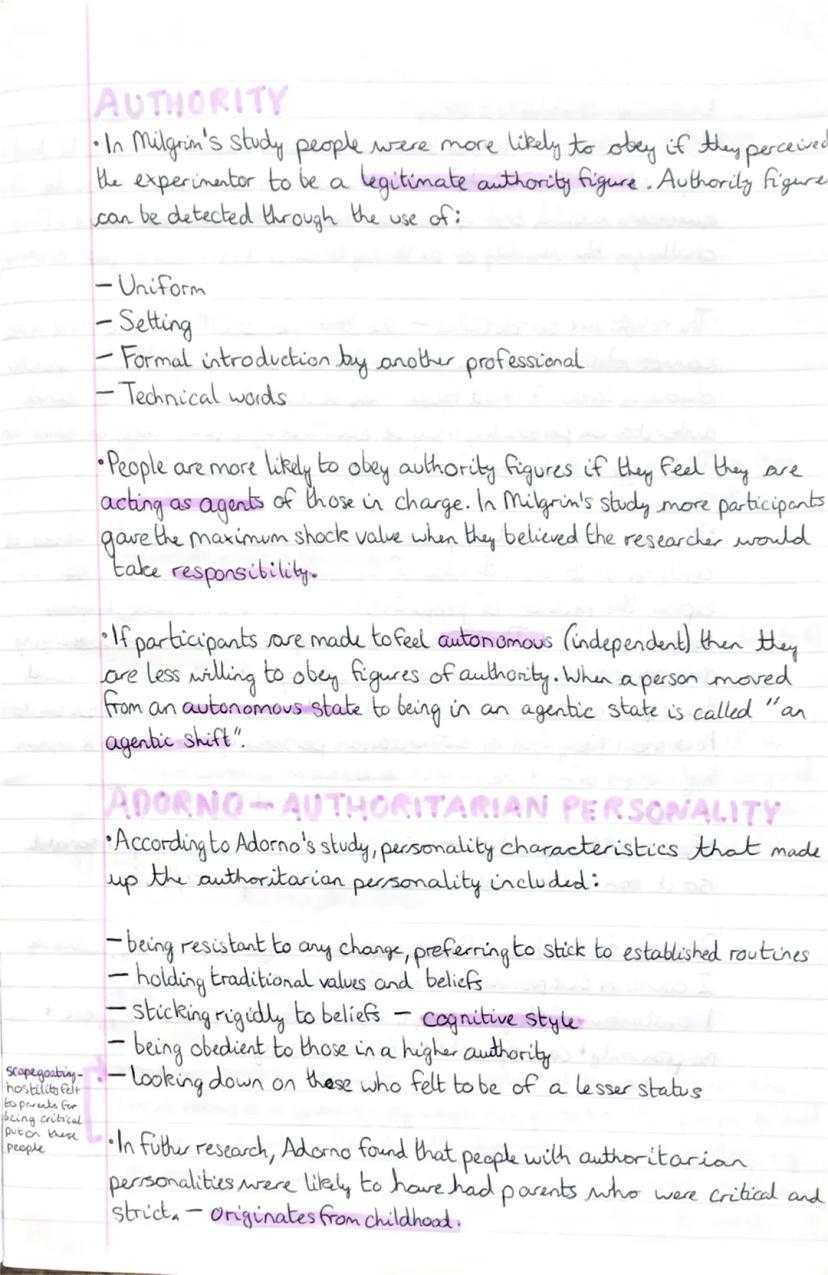 AUTHORITY
•In Milgrim's study people were more likely to obey if they perceived
the experimentor to be a legitimate authority figure. Authority figure
can be detected through the use of:
- Uniform
- Setting
- Formal introduction by another professional
- Technical words
•People are more likely to obey authority figures if they feel they are
acting as agents of those in charge. In Milgrim's study more participants
gave the maximum shock value when they believed the researcher would
take responsibility.
•If participants are made to feel autonomous (independent) then they
are less willing to obey figures of authority. When a person moved
from an autonomous state to being in an agentic state is called "an
agentic shift".
ADORNO - AUTHORITARIAN PERSONALITY
•According to Adorno's study, personality characteristics that made
up the authoritarian personality included:
- being resistant to any change, preferring to stick to established routines
- holding traditional values and beliefs
- sticking rigidly to beliefs - cognitive style
- being obedient to those in a higher authority
- looking down on those who felt to be of a lesser status
scapegoating-
hostility felt
to parents for
being critical
put on these
people
•In futher research, Adorno found that people with authoritarian
personalities were likely to have had parents who were critical and
strict. - originates from childhood.